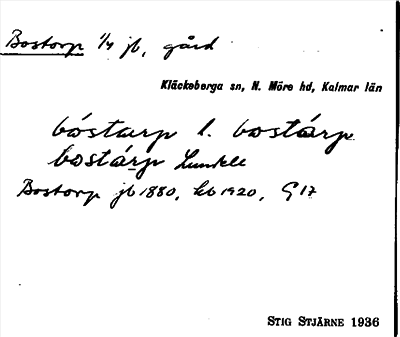 Bostorp 1/4 jb, gård
Kläckeberga sn, N. Möre hd, Kalmar län
bóstarp l. bostárp
bostárp Lunkell
Bostorp jb 1880, kb 1920, G 17
STIG STJÄRNE 1936